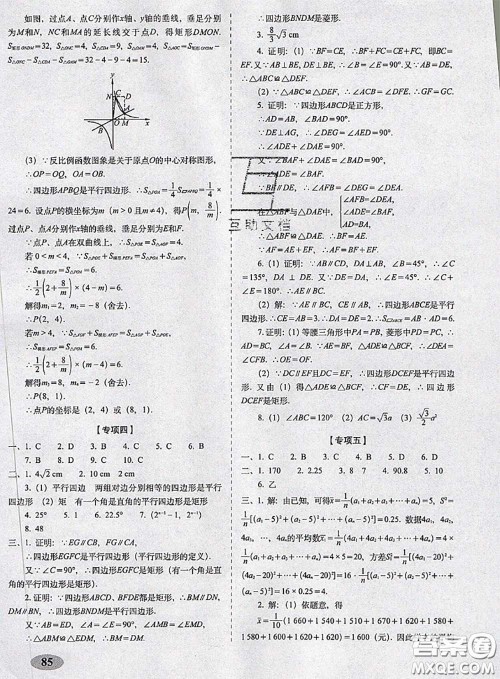 如图，过点A、点C分别作x轴、y轴的垂线，垂足分
别为M和N，NC和MA的延长线交于点D，得矩形DMON.
∴S矩形DMON=32，S△ONC=4，S△CDA=9，S△OAM=4.∴S△AOC=
S矩形DMON-S△ONC-S△CDA-S△OAM=32-4-9-4=15.
(3) ∵反比例函数图象是关于原点O的中心对称图形，
∴OP=OQ，OA=OB.
∴四边形APBQ是平行四边形.∴S△POA=1/4 S▱APBQ=1/4×
24=6. 设点P的横坐标为m（m＞0且m≠4），得P(m, 8/m).
过点P、点A分别作x轴的垂线，垂足分别为E和F.
∵点P、点A在双曲线上，∴S△POE=S△AOF=4.
若0＜m＜4，∵S△POE+S梯形PEFA=S△POA+S△AOF，
∴S梯形PEFA=S△POA=6.
∴1/2(2+8/m)×(4-m)=6.
解得m₁=2，m₂=-8（舍去）.
∴P(2, 4).
若m＞4，∵S△AOF+S梯形AFEP=S△AOP+S△POE，
∴S梯形AFEP=S△AOP=6.
∴1/2(2+8/m)×(m-4)=6.
解得m₃=8，m₄=-2（舍去）.
∴P(8, 1).
∴点P的坐标是（2，4）或（8，1）.
【专项四】
一、1. C 2. D 3. D 4. C 5. C 6. D 7. B 8. C
9. B 10. B
二、1. 4√2 cm 2. 10 cm 2 cm
3. (1) 平行四边 两组对边分别相等的四边形是平行
四边形 (2) 矩 有一个角是直角的平行四边形是矩形
4. 25° 5. 1 6. 22.5° 7. (2ⁿ⁻¹, 2ⁿ⁻¹)
8. 48
三、1. 证明：∵EG∥CB，FG∥CA，
∴四边形EGFC是平行四边形（平行四边形的定义）.
又∵∠C=90°，∴四边形EGFC是矩形（有一个角是直
角的平行四边形是矩形）.
2. 证明：∵四边形ABCD，BFDE都是矩形，
∴四边形BNDM是平行四边形. 又∵AB=BF=ED，
∴△ABM≌△EDM，∴BM=DM.
∴四边形BNDM是菱形.
3. 8/3 √3 cm
4. 证明：(1) ∵BF=CE，∴BF+CF=CE+CF. 即BC=
EF.又∵AB⊥BE，DE⊥BE，∴∠B=∠E=90°.又∵AB=DE，
∴△ABC≌△DEF.
(2) ∵△ABC≌△DEF，∴∠ACB=∠DFE. ∴GF=GC.
5. 证明：∵四边形ABCD是正方形，
∴AD=AB，∠BAF+∠DAE=∠BAD=90°.
∵DE⊥AG，∴∠DEG=∠AED=90°.
∴∠ADE+∠DAE=90°.
又∵∠BAF+∠DAE=∠BAD=90°，
∴∠ADE=∠BAF.
∵BF∥DE，∴∠AFB=∠DEG=∠AED.
在△ABF与△DAE中，{∠AFB=∠DEA,
∠BAF=∠ADE,
AD=BA.
∴△ABF≌△DAE. ∴BF=AE.
∵AF=AE+EF，∴AF=BF+EF.
6. 证明：(1) ∵∠EAF=45°，AE∥BC，∴∠C=
135°，DA⊥DE. 又∵DE=DA，∴∠E=45°. ∴∠C+
∠E=180°. ∴AC∥DE.
(2) 解：∵AE∥BC，AC∥DE，∴四边形ABCE是平行
四边形.∴CE=AB=3.∴DC=DE-CE=2.∴S▱ABCE=CE·AD=6.
7. 证明：(1) 等腰三角形中PA=PB，菱形中PC=PD，
∴AC=BD. ∵∠A=∠B，CF∥PB，DE∥PA，∴∠DEA=
∠CFB. ∴△ADE≌△BCF.
(2) ∵DC∥EF且DC=EF，∴四边形DCEF是平行四
边形. 又由(1)得△ADE≌△BCF，∴CF=DE，∴四边形
DCEF是矩形.
8. (1) ∠ABC=120° (2) AC=√3a (3) √3/2 a²
【专项五】
一、1. C 2. D 3. D 4. C 5. B 6. B
二、1. 170 2. 27. 3. 20 4. 90.8 5. 110
6. 乙
三、1. 解：由已知，可得x̄=1/n(a₁+a₂+a₃+⋯+aₙ)=5，S²=
1/n[(a₁-5)²+(a₂-5)²+⋯+(aₙ-5)²]=0.25. 数据4a₁，4a₂，
4a₃，⋯，4aₙ的平均数x̄₁=1/n(4a₁+4a₂+4a₃+⋯+4aₙ)=4×
1/n(a₁+a₂+a₃+⋯+aₙ)=4×5=20，方差S₁²=1/n[(4a₁-20)²+
(4a₂-20)²+⋯+(4aₙ-20)²]=1/n{[4(a₁-5)]²+[4(a₂-5)]²+
⋯+[4(aₙ-5)]²}=16×0.25=4.
2. 解：(1) 依题意，得
x̄=1/10(1 660+1 540+1 510+1 670+1 620+1 580+
1 580+1 600+1 620+1 620)=1 600（元）.
互助文档
答案圈
MXQE.COM
85